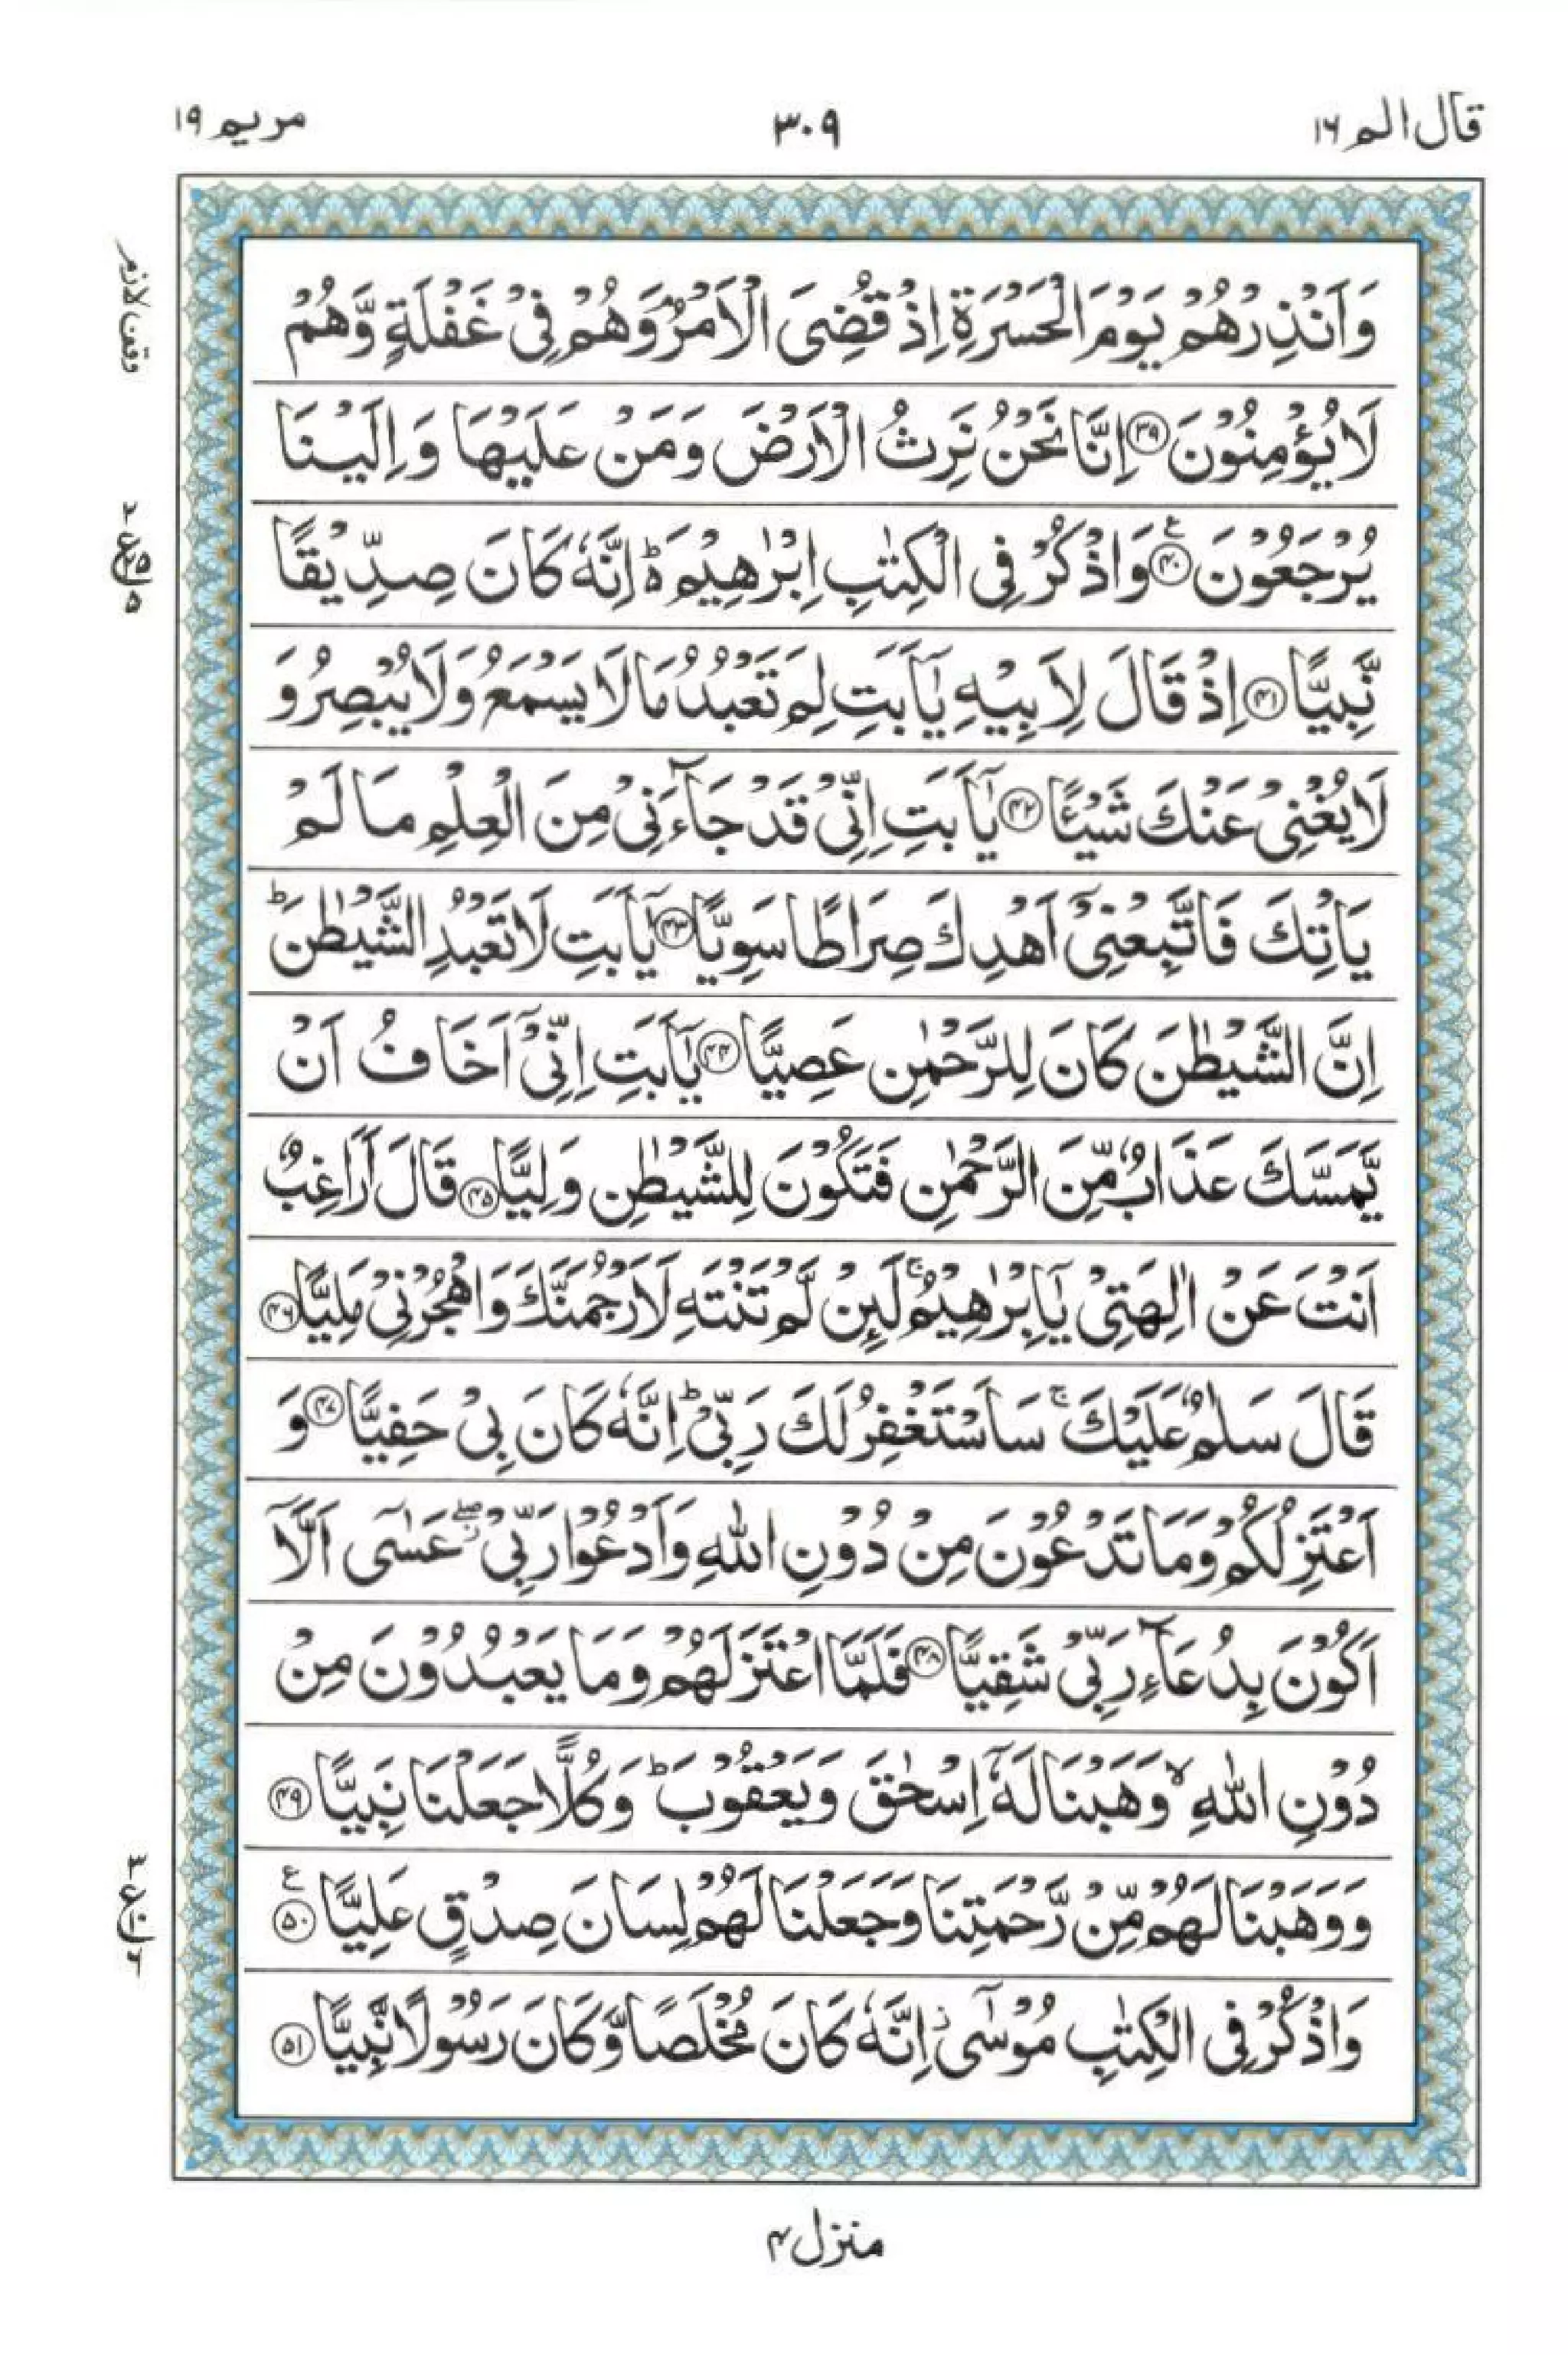 قال الم ١٦
٣٠٩
مريم ١٩
وَاَنْذِرْهُمْ يَوْمَ الْحَسْرَةِ اِذْ قُضِىَ الْاَمْرُ ۘ وَهُمْ فِىْ غَفْلَةٍ وَّهُمْ
لَا يُؤْمِنُوْنَ ﴿٣٩﴾ اِنَّا نَحْنُ نَرِثُ الْاَرْضَ وَمَنْ عَلَيْهَا وَاِلَيْنَا
يُرْجَعُوْنَ ﴿٤٠﴾ۧ وَاذْكُرْ فِى الْكِتٰبِ اِبْرٰهِيْمَ ؕ اِنَّهٗ كَانَ صِدِّيْقًا
نَّبِيًّا ﴿٤١﴾ اِذْ قَالَ لِاَبِيْهِ يٰۤاَبَتِ لِمَ تَعْبُدُ مَا لَا يَسْمَعُ وَلَا يُبْصِرُ وَ
لَا يُغْنِىْ عَنْكَ شَيْـًٔا ﴿٤٢﴾ يٰۤاَبَتِ اِنِّىْ قَدْ جَآءَنِىْ مِنَ الْعِلْمِ مَا لَمْ
يَاْتِكَ فَاتَّبِعْنِىْۤ اَهْدِكَ صِرَاطًا سَوِيًّا ﴿٤٣﴾ يٰۤاَبَتِ لَا تَعْبُدِ الشَّيْطٰنَ ؕ
اِنَّ الشَّيْطٰنَ كَانَ لِلرَّحْمٰنِ عَصِيًّا ﴿٤٤﴾ يٰۤاَبَتِ اِنِّىْۤ اَخَافُ اَنْ
يَّمَسَّكَ عَذَابٌ مِّنَ الرَّحْمٰنِ فَتَكُوْنَ لِلشَّيْطٰنِ وَلِيًّا ﴿٤٥﴾ قَالَ اَرَاغِبٌ
اَنْتَ عَنْ اٰلِهَتِىْ يٰۤاِبْرٰهِيْمُ ۚ لَئِنْ لَّمْ تَنْتَهِ لَاَرْجُمَنَّكَ وَاهْجُرْنِىْ مَلِيًّا ﴿٤٦﴾
قَالَ سَلٰمٌ عَلَيْكَ ۚ سَاَسْتَغْفِرُ لَكَ رَبِّىْ ؕ اِنَّهٗ كَانَ بِىْ حَفِيًّا ﴿٤٧﴾ وَ
اَعْتَزِلُكُمْ وَمَا تَدْعُوْنَ مِنْ دُوْنِ اللّٰهِ وَاَدْعُوْا رَبِّىْ ۖ عَسٰۤى اَلَّاۤ
اَكُوْنَ بِدُعَآءِ رَبِّىْ شَقِيًّا ﴿٤٨﴾ فَلَمَّا اعْتَزَلَهُمْ وَمَا يَعْبُدُوْنَ مِنْ
دُوْنِ اللّٰهِ ۙ وَهَبْنَا لَهٗۤ اِسْحٰقَ وَيَعْقُوْبَ ؕ وَكُلًّا جَعَلْنَا نَبِيًّا ﴿٤٩﴾
وَوَهَبْنَا لَهُمْ مِّنْ رَّحْمَتِنَا وَجَعَلْنَا لَهُمْ لِسَانَ صِدْقٍ عَلِيًّا ﴿٥٠﴾ۧ
وَاذْكُرْ فِى الْكِتٰبِ مُوْسٰۤى ۫ اِنَّهٗ كَانَ مُخْلَصًا وَّكَانَ رَسُوْلًا نَّبِيًّا ﴿٥١﴾
وقف لازم
منزل ٤